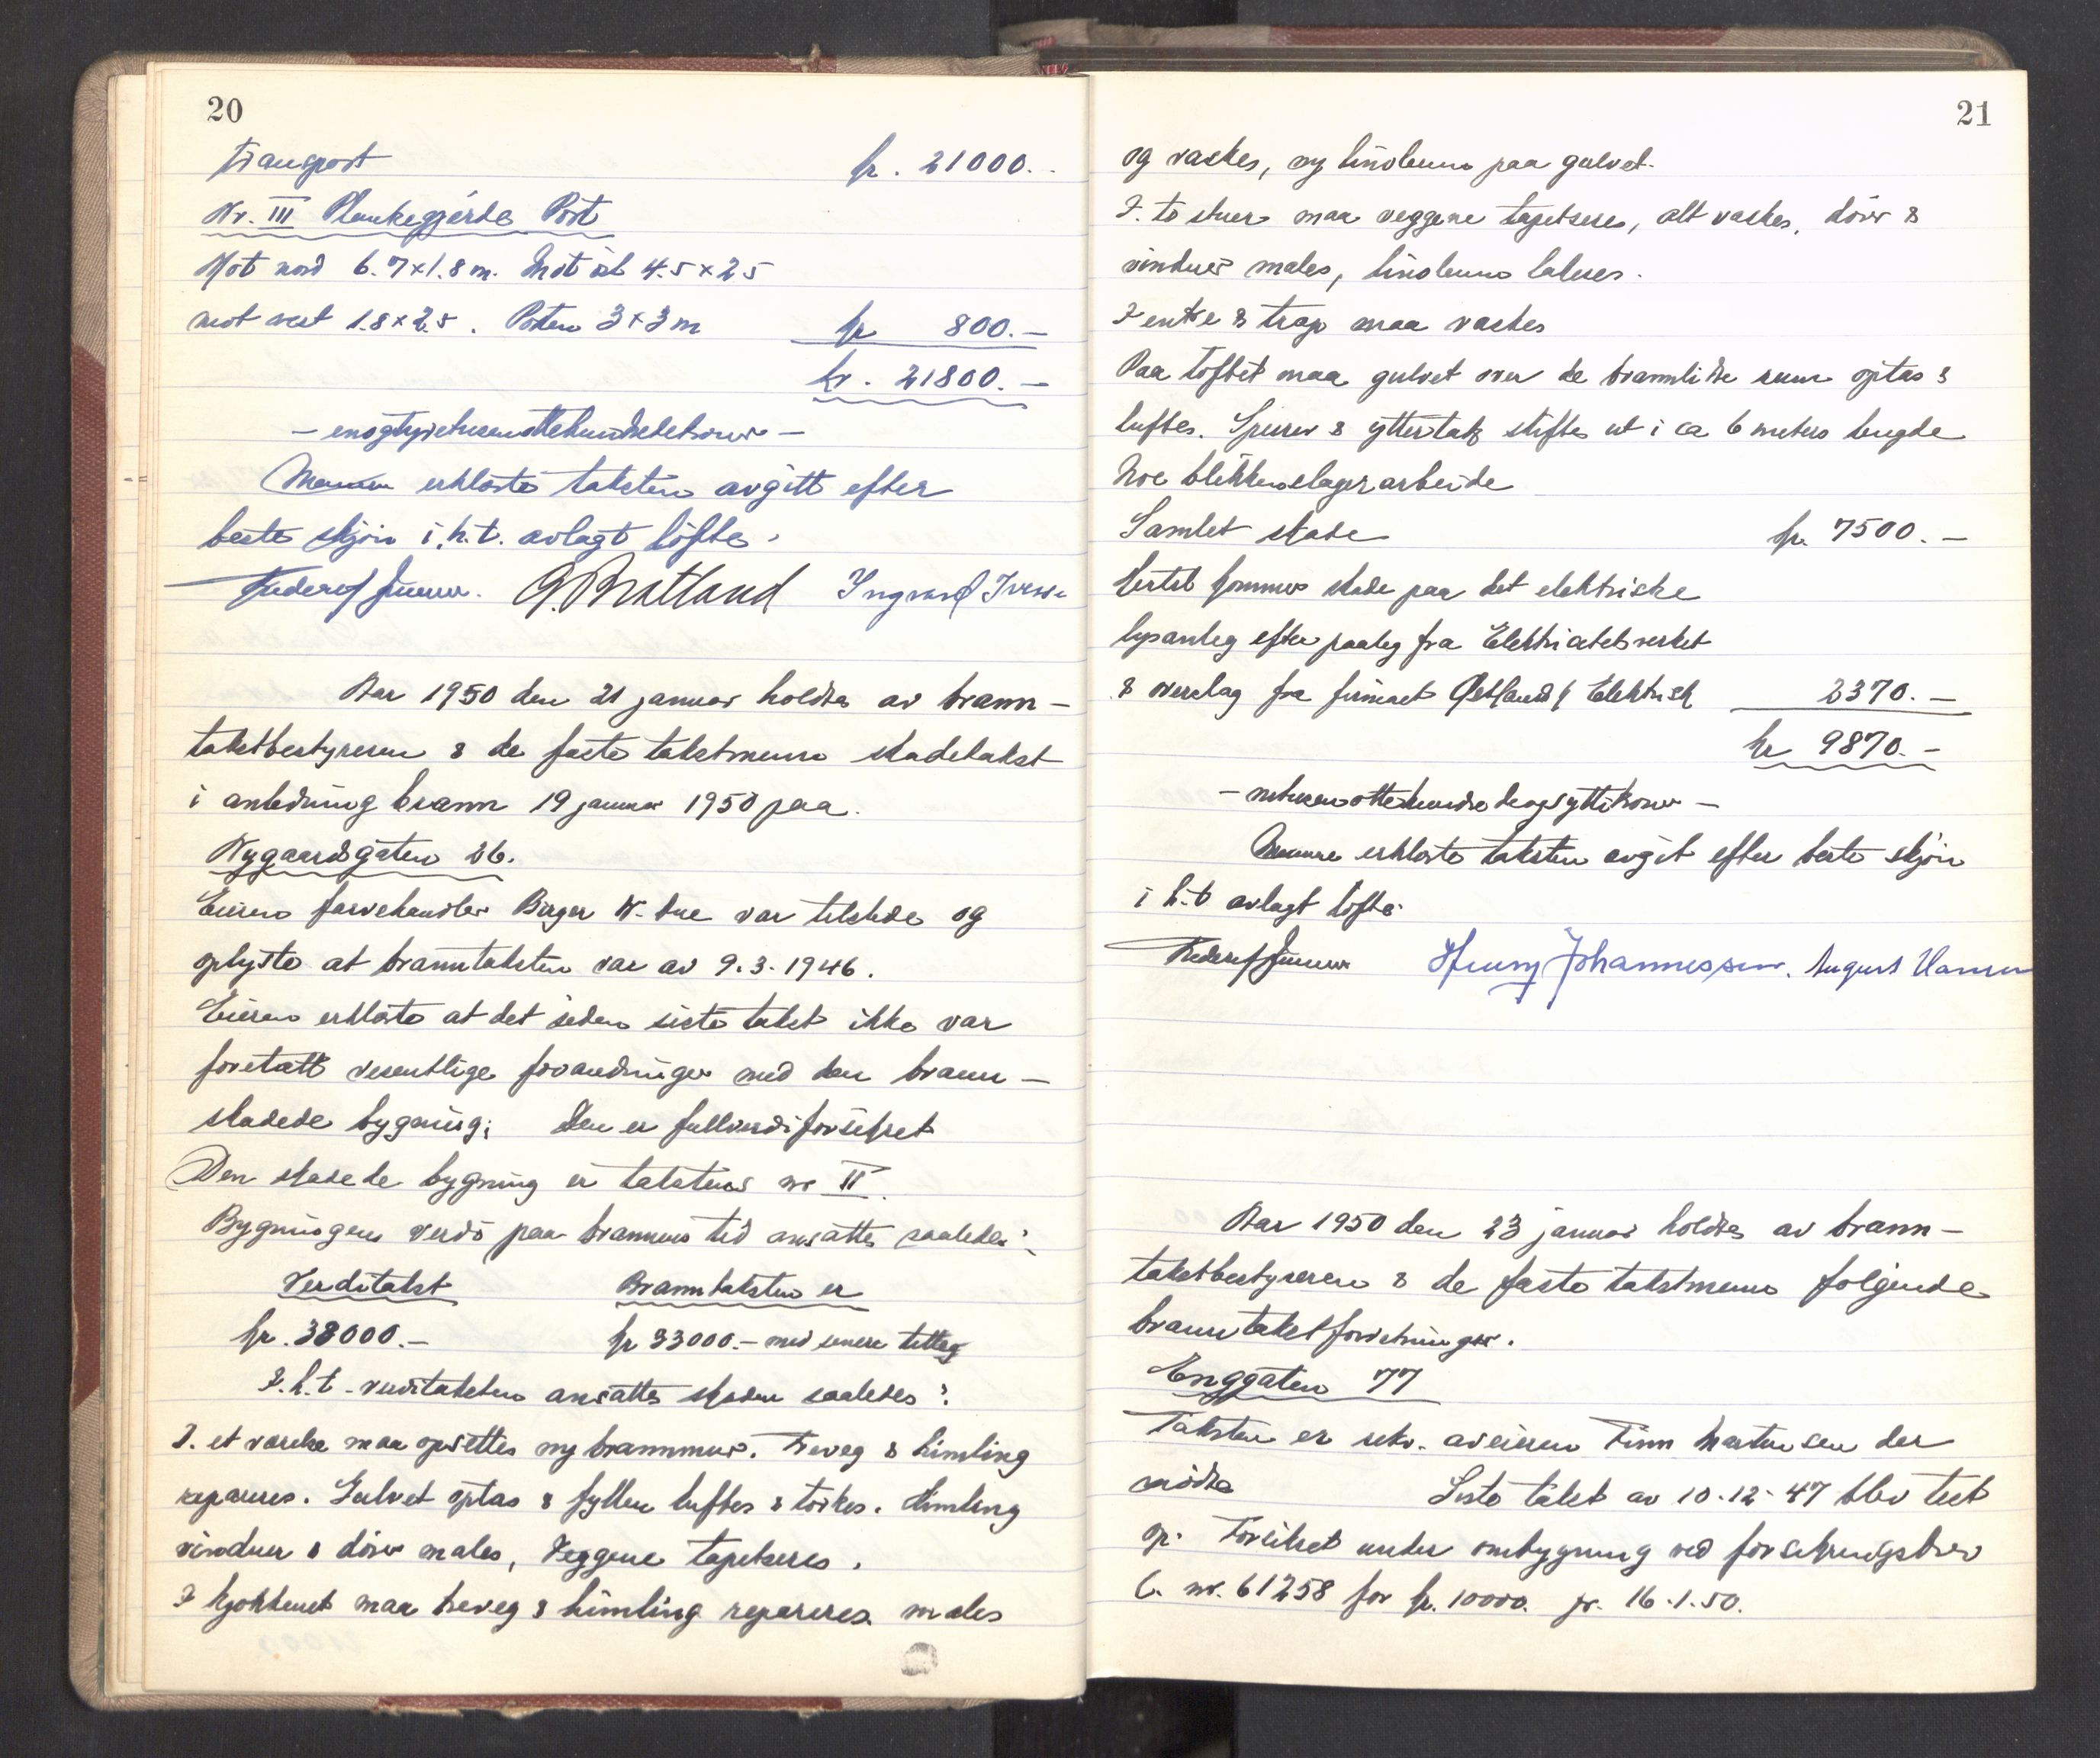 20
Transport kr. 21000.-
Nr. III Plankegjerde Port
Mot nord 6.7×1.8 m. Mot öst 4.5×25
mot vest 1.8×2.5. Porten 3×3 m kr 800.-
kr. 21800.-
- enogtyvetusenottehundredekroner -
Mennene erklærte taksten avgitt efter
beste skjön i.h.t. avlagt löfte.
G. Bratland Ingvard Iversen
Aar 1950 den 21 januar holdtes av brann-
takstbestyreren & de faste takstmenn skadetakst
i anledning brann 19 januar 1950 paa.
Nygaardsgaten 26.
Eieren farvehandler Birger W. Due var tilstede og
oplyste at branntaksten var av 9.3.1946.
Eieren erklærte at det siden siste takst ikke var
foretatt vesentlige forandringer med den brann-
skadede bygning; Den er fullverdiforsikret
Den skadede bygning er takstens nr II.
Bygningens verdi paa brannens tid ansattes saaledes:
Verditakst Branntaksten er
kr. 38000.- kr 33000.- med senere tillæg
I.h.t. verditaksten ansattes skaden saaledes:
I. et værelse maa opsettes ny brannmur. Treveg & himling
repareres. Gulvet optas & fyllen luftes & törkes. Himling
vinduer & dörer males, Veggene tapetseres.
I kjökkenet maa treveg & himling repareres males
21
og vaskes, ny linoleum paa gulvet.
I. to stuer maa veggene tapetseres, alt vaskes, dörer &
vinduer males, linoleum lakeres.
I entre & trap maa vaskes
Paa loftet maa gulvet over de brannlidte rum optas &
luftes. Sperrer & yttertak skiftes ut i ca 6 meters lengde
Noe blikkenslagerarbeide
Samlet skade kr. 7500.-
Hertil kommer skade paa det elektriske
lysanleg efter paaleg fra Elektricitetsverket
& overslag fra firmaet Östlandsk Elektrisk 2370.-
kr 9870.-
- nitusenottehundredeogsyttikroner -
Mennene erklærte taksten avgit efter beste skjön
i h.t avlagt löfte.
Henry Johannessen. August Hansen
Aar 1950 den 23 januar holdtes av brann-
takstbestyreren & de faste takstmenn folgende
branntakstforretninger.
Enggaten 77
Taksten er rekv. av eieren Finn Martinsen der
mödte Siste takst av 10-12-47 blev lest
op. Forsikret under ombygning ved forsikringsbrev
C. nr. 61258 for kr. 10000. pr. 16.1.50.